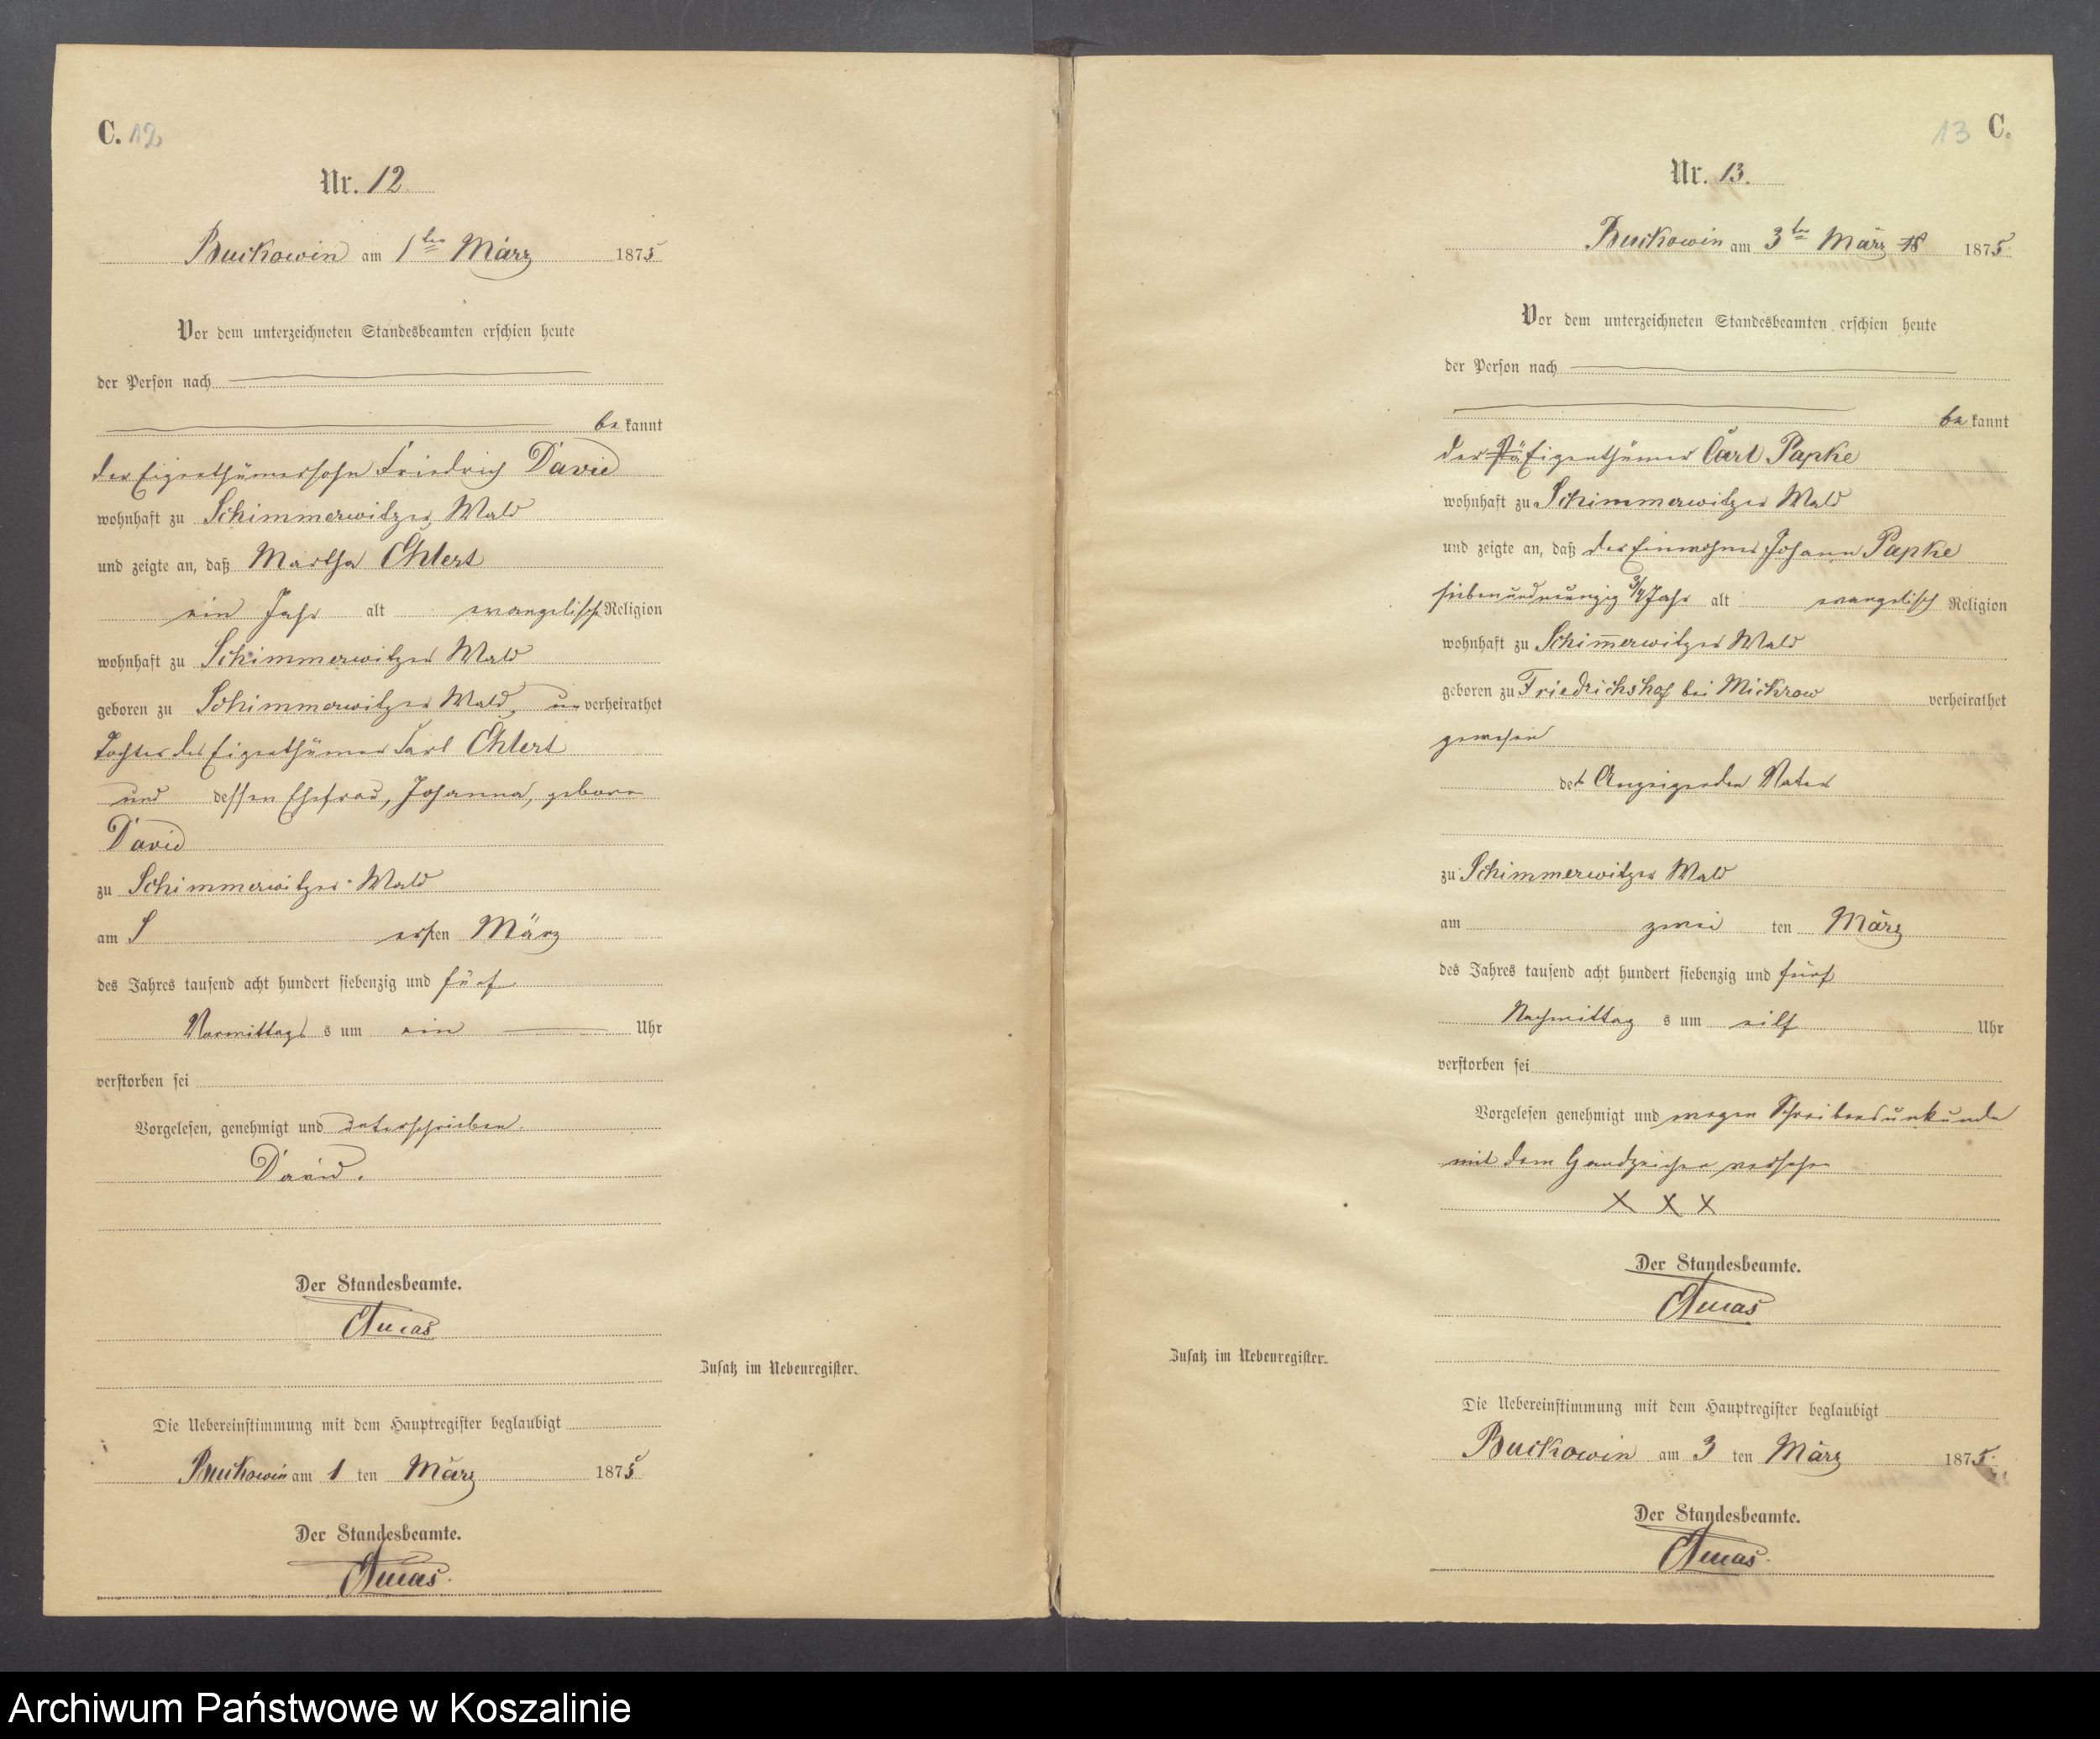 C. 12
Nr. 12.
Buckowin am 1ten März 1875
Vor dem unterzeichneten Standesbeamten erschien heute
der Person nach
be kannt
der Eigenthümersohn Friedrich David
wohnhaft zu Schimmerwitzer Wald
und zeigte an, daß Martha Ehlert
ein Jahr alt evangelisch Religion
wohnhaft zu Schimmerwitzer Wald
geboren zu Schimmerwitzer Wald, un verheirathet
Tochter des Eigenthümer Carl Ehlert
und dessen Ehefrau, Johanna, geborn
David
zu Schimmerwitzer Wald
am ersten März
des Jahres tausend acht hundert siebenzig und fünf
Vormittags s um ein Uhr
verstorben sei
Vorgelesen, genehmigt und unterschrieben.
David.
Der Standesbeamte.
Zusatz im Nebenregister.
Die Uebereinstimmung mit dem Hauptregister beglaubigt
Buckowin am 1 ten März 1875
Der Standesbeamte.
13 C.
Nr. 13.
Buckowin am 3ten März 18 1875.
Vor dem unterzeichneten Standesbeamten erschien heute
der Person nach
be kannt
der Pä Eigenthümer Carl Papke
wohnhaft zu Schimmerwitzer Wald
und zeigte an, daß der Einwohner Johann Papke
siebenundneunzig 3/4 Jahr alt evangelisch Religion
wohnhaft zu Schim̄erwitzer Wald
geboren zu Friedrichshof bei Mickrow verheirathet
gewesen
des Anzeigenden Vater
zu Schimmerwitzer Wald
am zwei ten März
des Jahres tausend acht hundert siebenzig und fünf
Nachmittag s um eilf Uhr
verstorben sei
Vorgelesen genehmigt und wegen Schreibensunkunde
mit dem Handzeichen versehen
X X X
Der Standesbeamte.
Zusatz im Nebenregister.
Die Uebereinstimmung mit dem Hauptregister beglaubigt
Buckowin am 3 ten März 1875.
Der Standesbeamte.
Archiwum Państwowe w Koszalinie